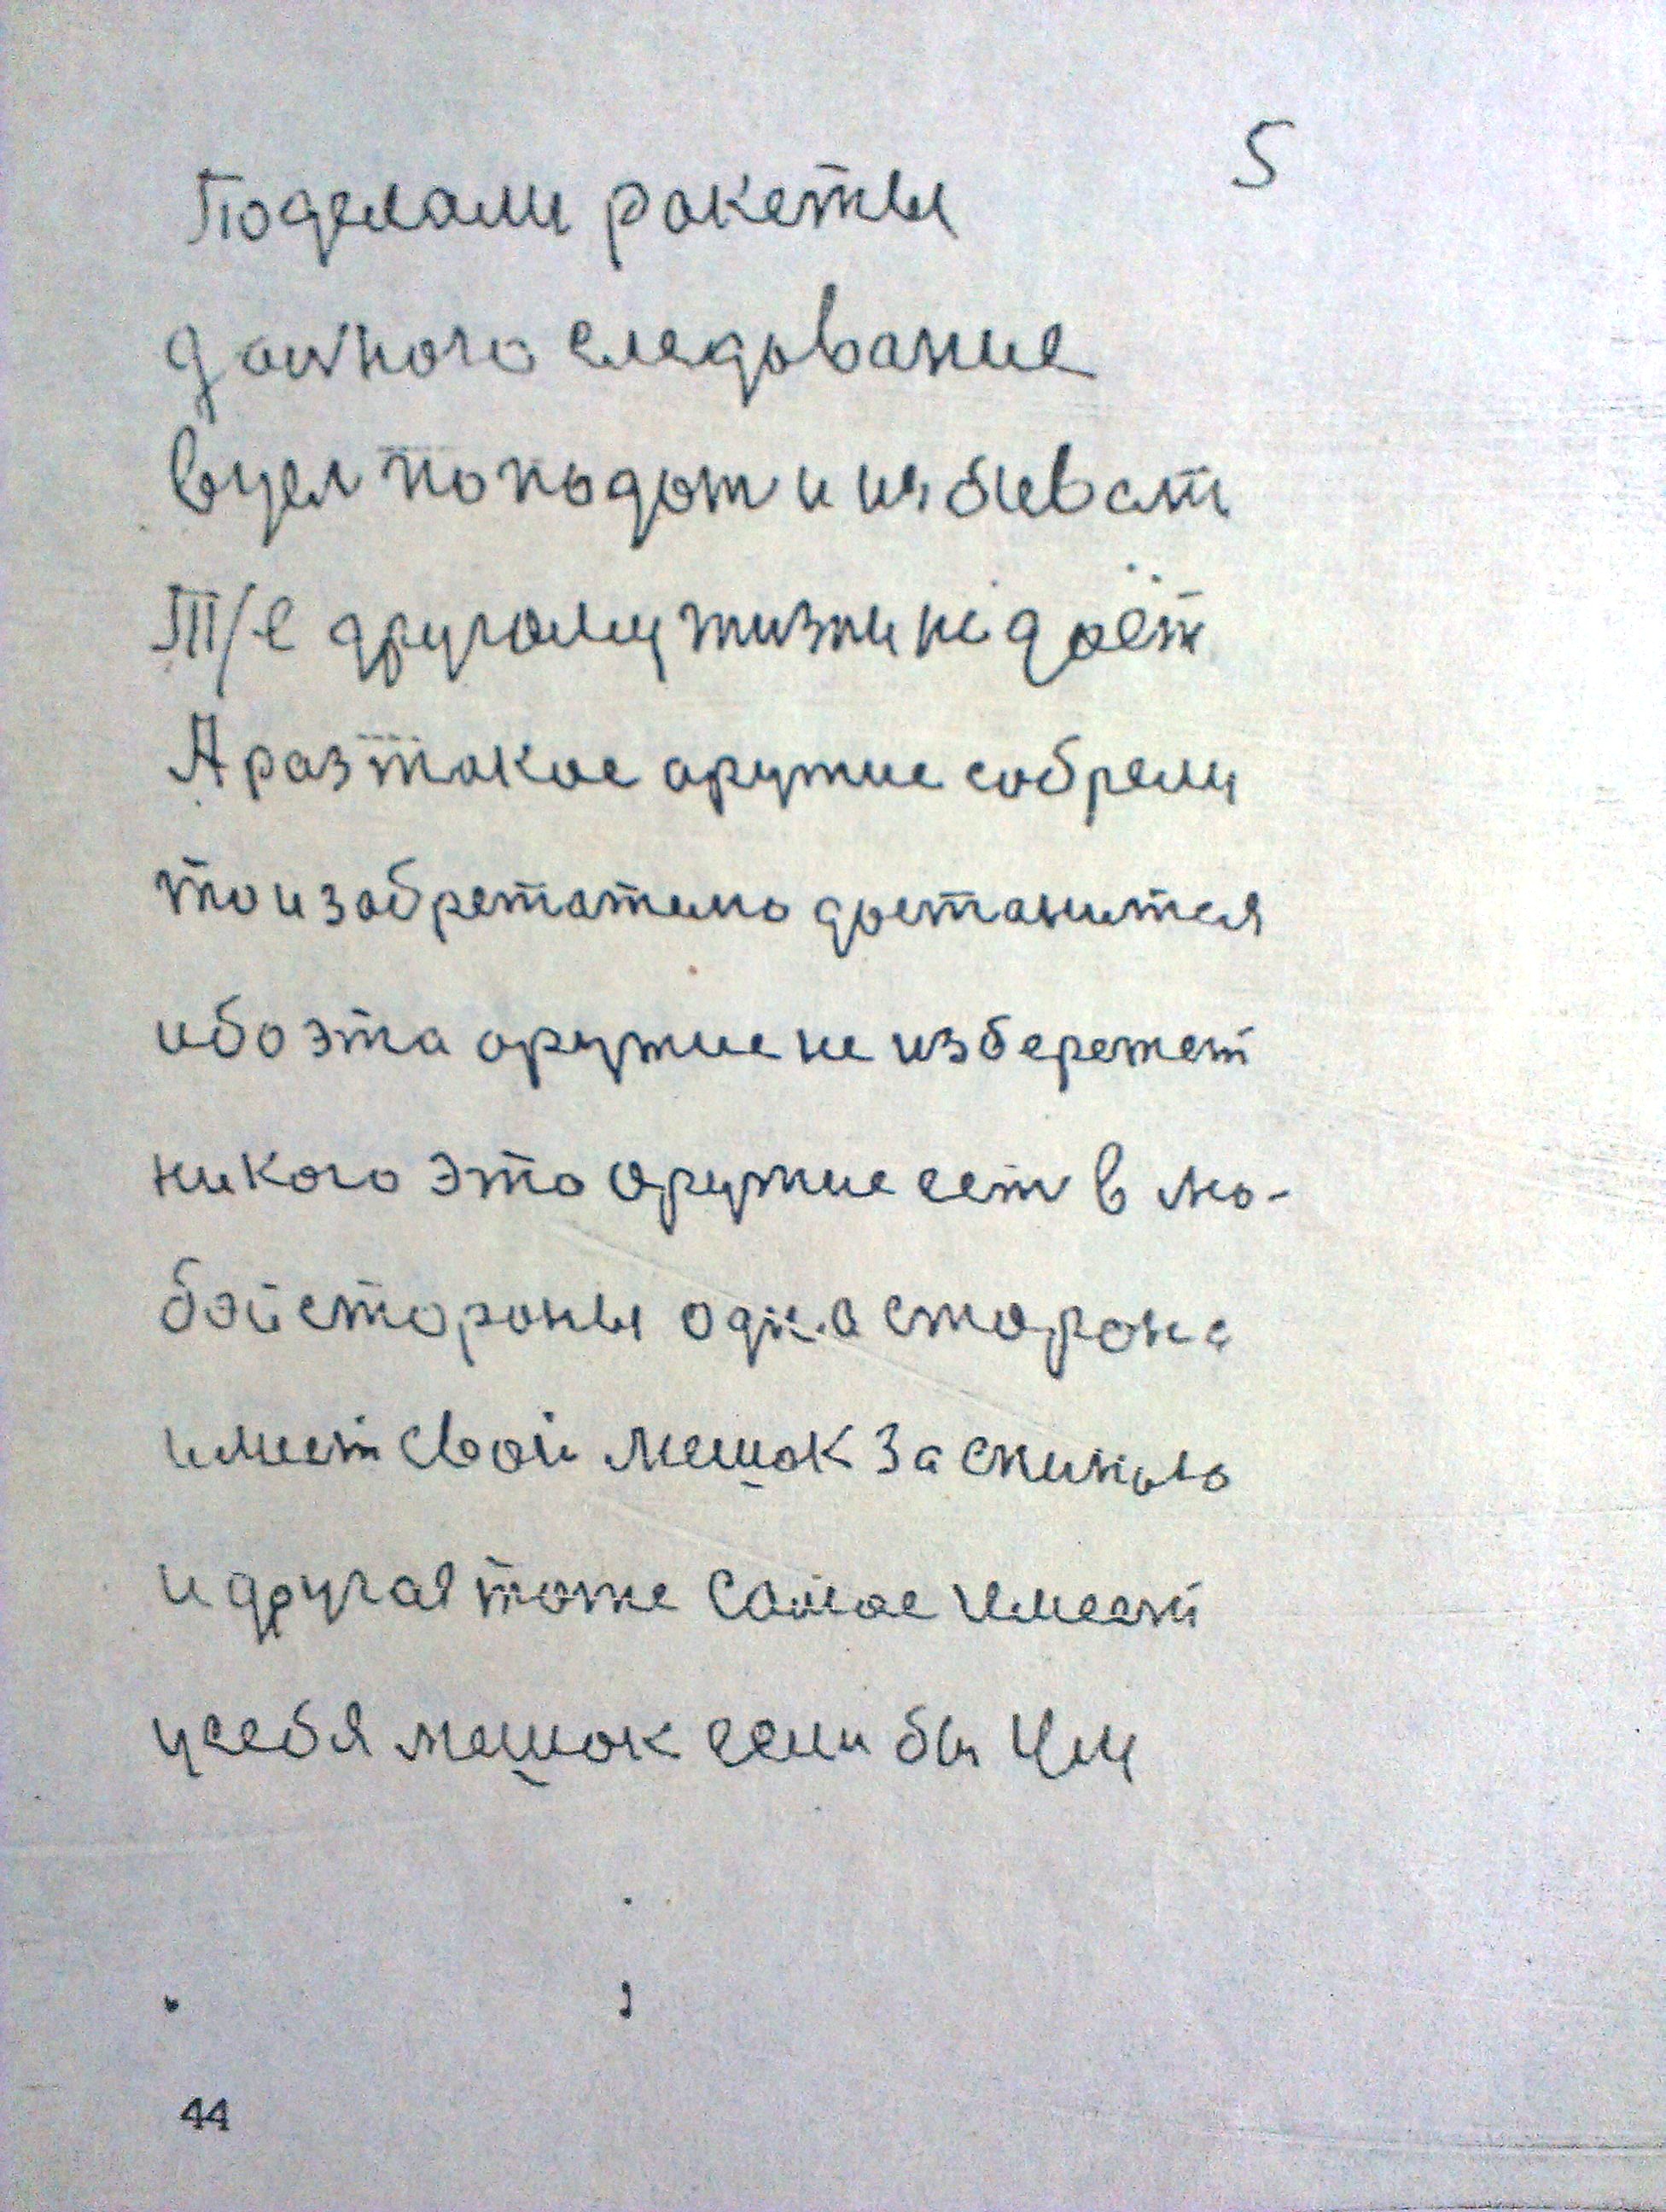 5
Поделали ракеты
дального следование
вцел попадот и избивает
Т/е другому жизни не даёт
А раз такое аружие собрали
то изабретателю достанится
ибо эта аружие не избережет
никого это оружие есть в лю-
бой стороны одна сторона
имеет свой мешок за спиною
и другая тоже самое имеет
у себя мешок если бы им
44